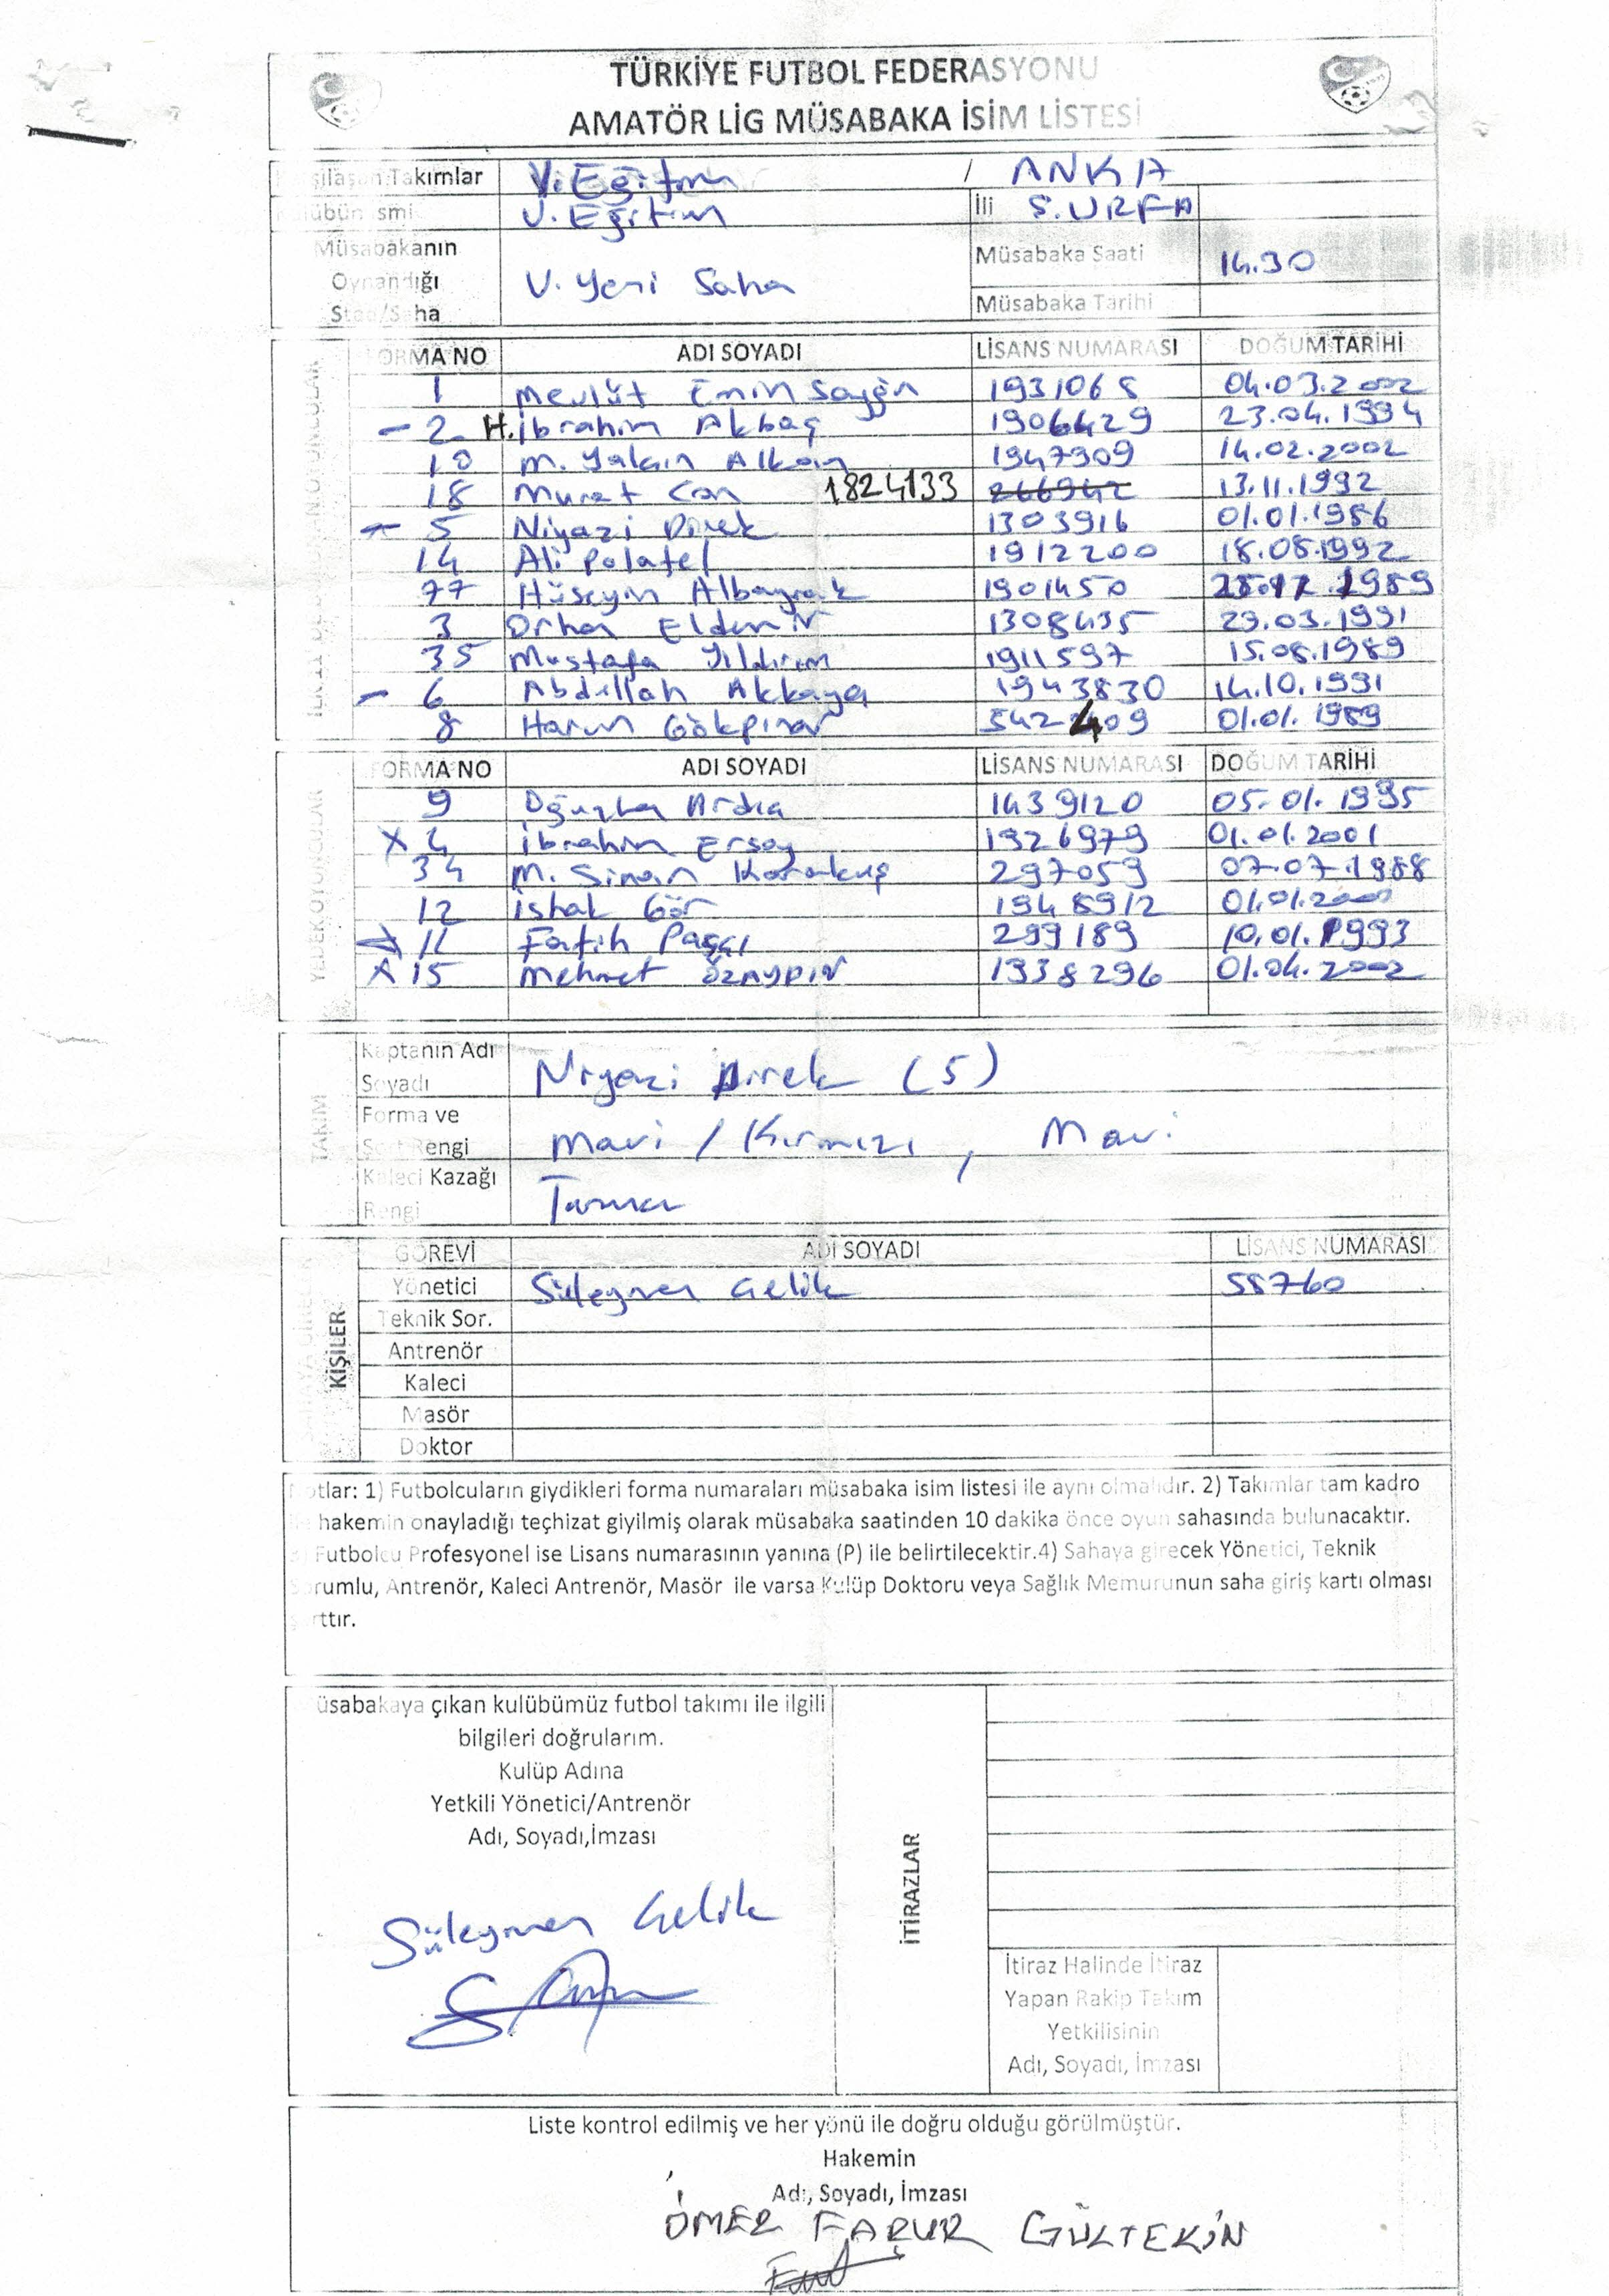 TÜRKİYE FUTBOL FEDERASYONU
AMATÖR LİG MÜSABAKA İSİM LİSTESİ
Takımlar V. Eğitim / ANKA
V. Eğitim İli Ş.URFA
Müsabakanın Oynandığı Stad/Saha V. Yeni Saha Müsabaka Saati 14.30
Müsabaka Tarihi
FORMA NO ADI SOYADI LİSANS NUMARASI DOĞUM TARİHİ
1 Mevlüt Emin Saygın 1931068 04.03.2002
- 2 H.İbrahim Akbaş 1906429 23.04.1994
10 M. Yakın Alkan 1947309 14.02.2002
18 Murat Can 1824133 266942 13.11.1992
- 5 Niyazi Direk 1303916 01.01.1986
14 Ali Polatel 1912200 18.08.1992
77 Hüseyin Albayrak 1901450 1989
3 Orhan Eldemir 1308435 29.03.1991
35 Mustafa Yıldırım 1911597 15.08.1989
- 6 Abdullah Akkaya 1943830 14.10.1991
8 Harun Gökpınar 3422409 01.01.1989
FORMA NO ADI SOYADI LİSANS NUMARASI DOĞUM TARİHİ
9 Oğuzhan 1439120 05.01.1995
X 4 İbrahim Ersoy 1926979 01.01.2001
34 M. Sinan Karakuş 297059 07.07.1988
12 İshak Gör 1948912 01.01.2000
11 Fatih Paşçı 299189 10.01.1993
X 15 Mehmet Öznypır 1938296 01.04.2002
YEDEK OYUNCULAR
TAKIM
Kaptanın Adı Soyadı Niyazi Direk (5)
Forma ve Şort Rengi Mavi / Kırmızı , Mavi
Kaleci Kazağı Rengi Turuncu
KİŞİLER
GÖREVİ ADI SOYADI LİSANS NUMARASI
Yönetici Süleyman Çelik 55760
Teknik Sor.
Antrenör
Kaleci
Masör
Doktor
Notlar: 1) Futbolcuların giydikleri forma numaraları müsabaka isim listesi ile aynı olmalıdır. 2) Takımlar tam kadro
hakemin onayladığı teçhizat giyilmiş olarak müsabaka saatinden 10 dakika önce oyun sahasında bulunacaktır.
Futbolcu Profesyonel ise Lisans numarasının yanına (P) ile belirtilecektir.4) Sahaya girecek Yönetici, Teknik
Sorumlu, Antrenör, Kaleci Antrenör, Masör ile varsa Kulüp Doktoru veya Sağlık Memurunun saha giriş kartı olması
şarttır.
Müsabakaya çıkan kulübümüz futbol takımı ile ilgili
bilgileri doğrularım.
Kulüp Adına
Yetkili Yönetici/Antrenör
Adı, Soyadı,İmzası
Süleyman Çelik
İTİRAZLAR
İtiraz Halinde İtiraz
Yapan Rakip Takım
Yetkilisinin
Adı, Soyadı, İmzası
Liste kontrol edilmiş ve her yönü ile doğru olduğu görülmüştür.
Hakemin
Adı, Soyadı, İmzası
ÖMER FARUK GÜLTEKİN